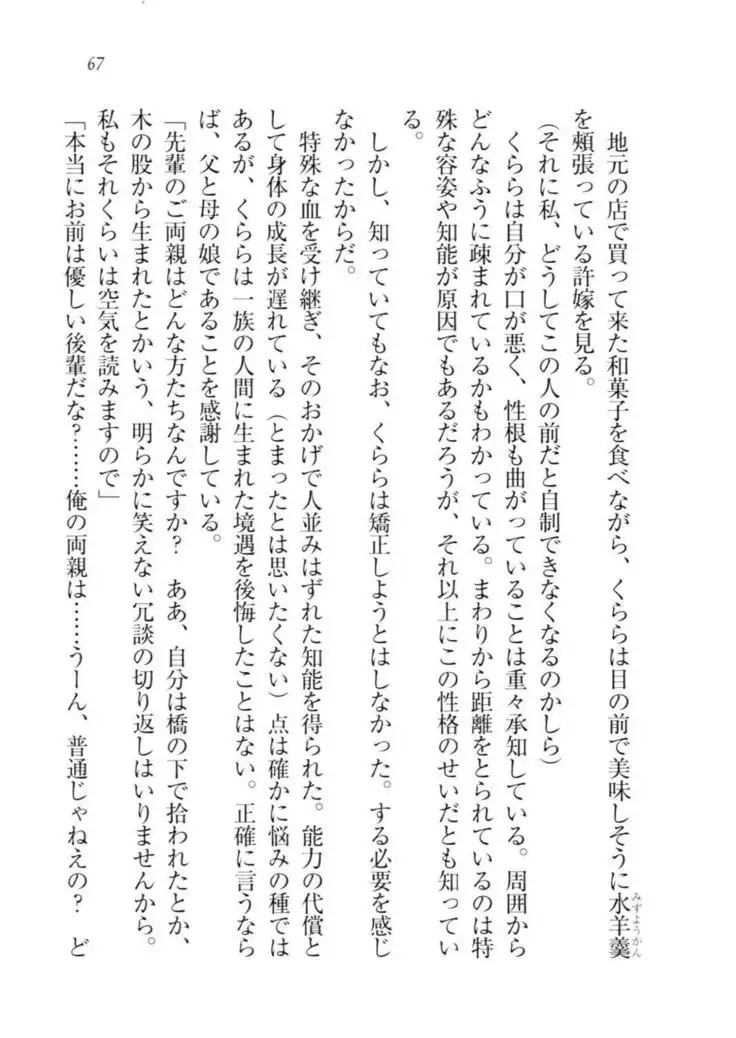 67
地元の店で買って来た和菓子を食べながら、くららは目の前で美味しそうに水羊羹
みずようかん
を頰張っている許嫁を見る。
(それに私、どうしてこの人の前だと自制できなくなるのかしら)
くららは自分が口が悪く、性根も曲がっていることは重々承知している。周囲から
どんなふうに疎まれているかもわかっている。まわりから距離をとられているのは特
殊な容姿や知能が原因でもあるだろうが、それ以上にこの性格のせいだとも知ってい
る。
しかし、知っていてもなお、くららは矯正しようとはしなかった。する必要を感じ
なかったからだ。
特殊な血を受け継ぎ、そのおかげで人並みはずれた知能を得られた。能力の代償と
して身体の成長が遅れている(とまったとは思いたくない)点は確かに悩みの種では
あるが、くららは一族の人間に生まれた境遇を後悔したことはない。正確に言うなら
ば、父と母の娘であることを感謝している。
「先輩のご両親はどんな方たちなんですか? ああ、自分は橋の下で拾われたとか、
木の股から生まれたとかいう、明らかに笑えない冗談の切り返しはいりませんから。
私もそれくらいは空気を読みますので」
「本当にお前は優しい後輩だな?……俺の両親は……うーん、普通じゃねえの? ど